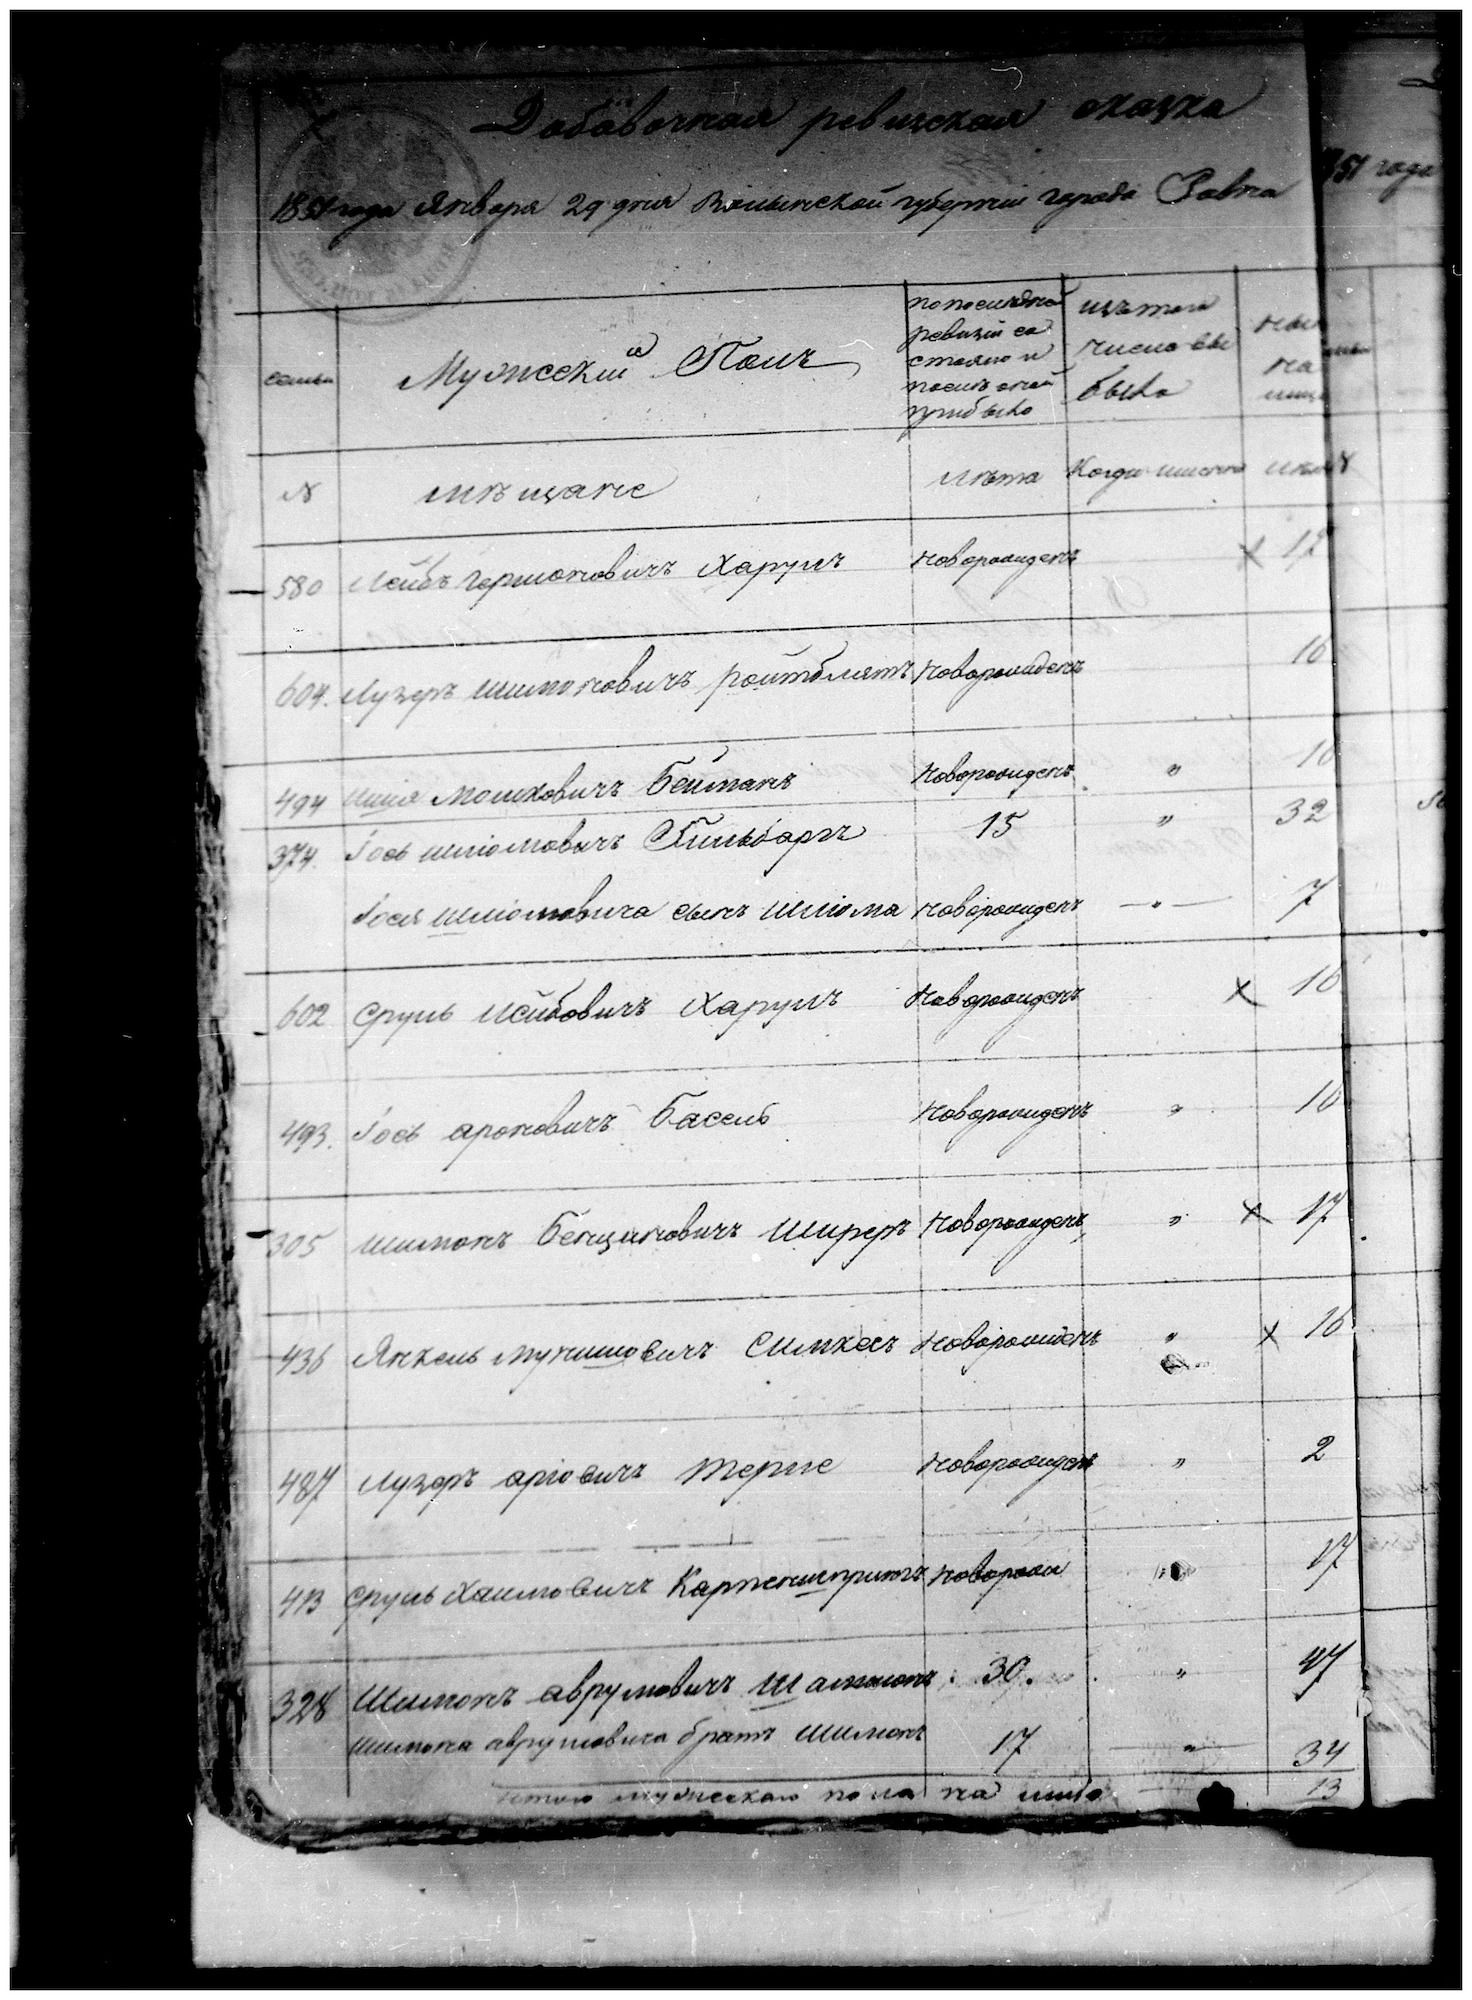 Добавочная ревизская сказка
1851 года Января 29 дня Волынской губернии города Ровна
51 года
семьи
Мужеский Полъ
по последней
ревизіи со
стояло и
после оной
прибыло
изъ того
числа вы
было
ныне
на
лицо
N
мѣщане
лѣта
Когда именно
лѣта
580 Лейбъ Гершоновичъ Харушъ новорожденъ х 12
604. Лузеръ Шимоновичъ ройтблятъ новорожденъ 16
494 Мошковичъ Бейманъ новорожденъ " 16
374. Іось Шліомовичъ Гильбаргъ 15 " 32
Іося Шліомовича сынъ Шліома новорожденъ " 7
602 Сруль Лейбовичъ Харушъ новорожденъ х 16
493. Іось Ароновичъ Басель новорожденъ " 16
305 Шимонъ Бенціоновичъ Ширеръ новорожденъ " х 17
436 Янкель Мунишовичъ Симхесъ новорожденъ " х 16
487 Лузеръ Аріовичъ Терне новорожденъ " 2
413 Сруль Хаимовичъ новорож 17
328 Шимонъ Аврумовичъ 30. " 47
Шимона Аврумовича братъ Шимонъ 17 " 34
итого мужескаго пола на лицо 13